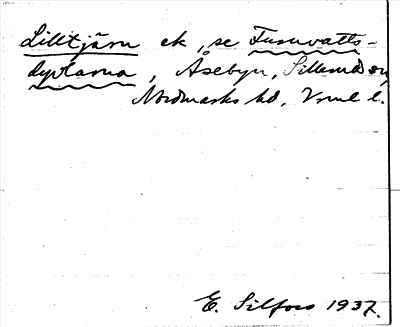 Lilltjärn ek, se Furuvatts-
dyplarna, Åsebyn, Sillerud sn,
Nordmarks hd, Vrml l.
E. Silfors 1937.